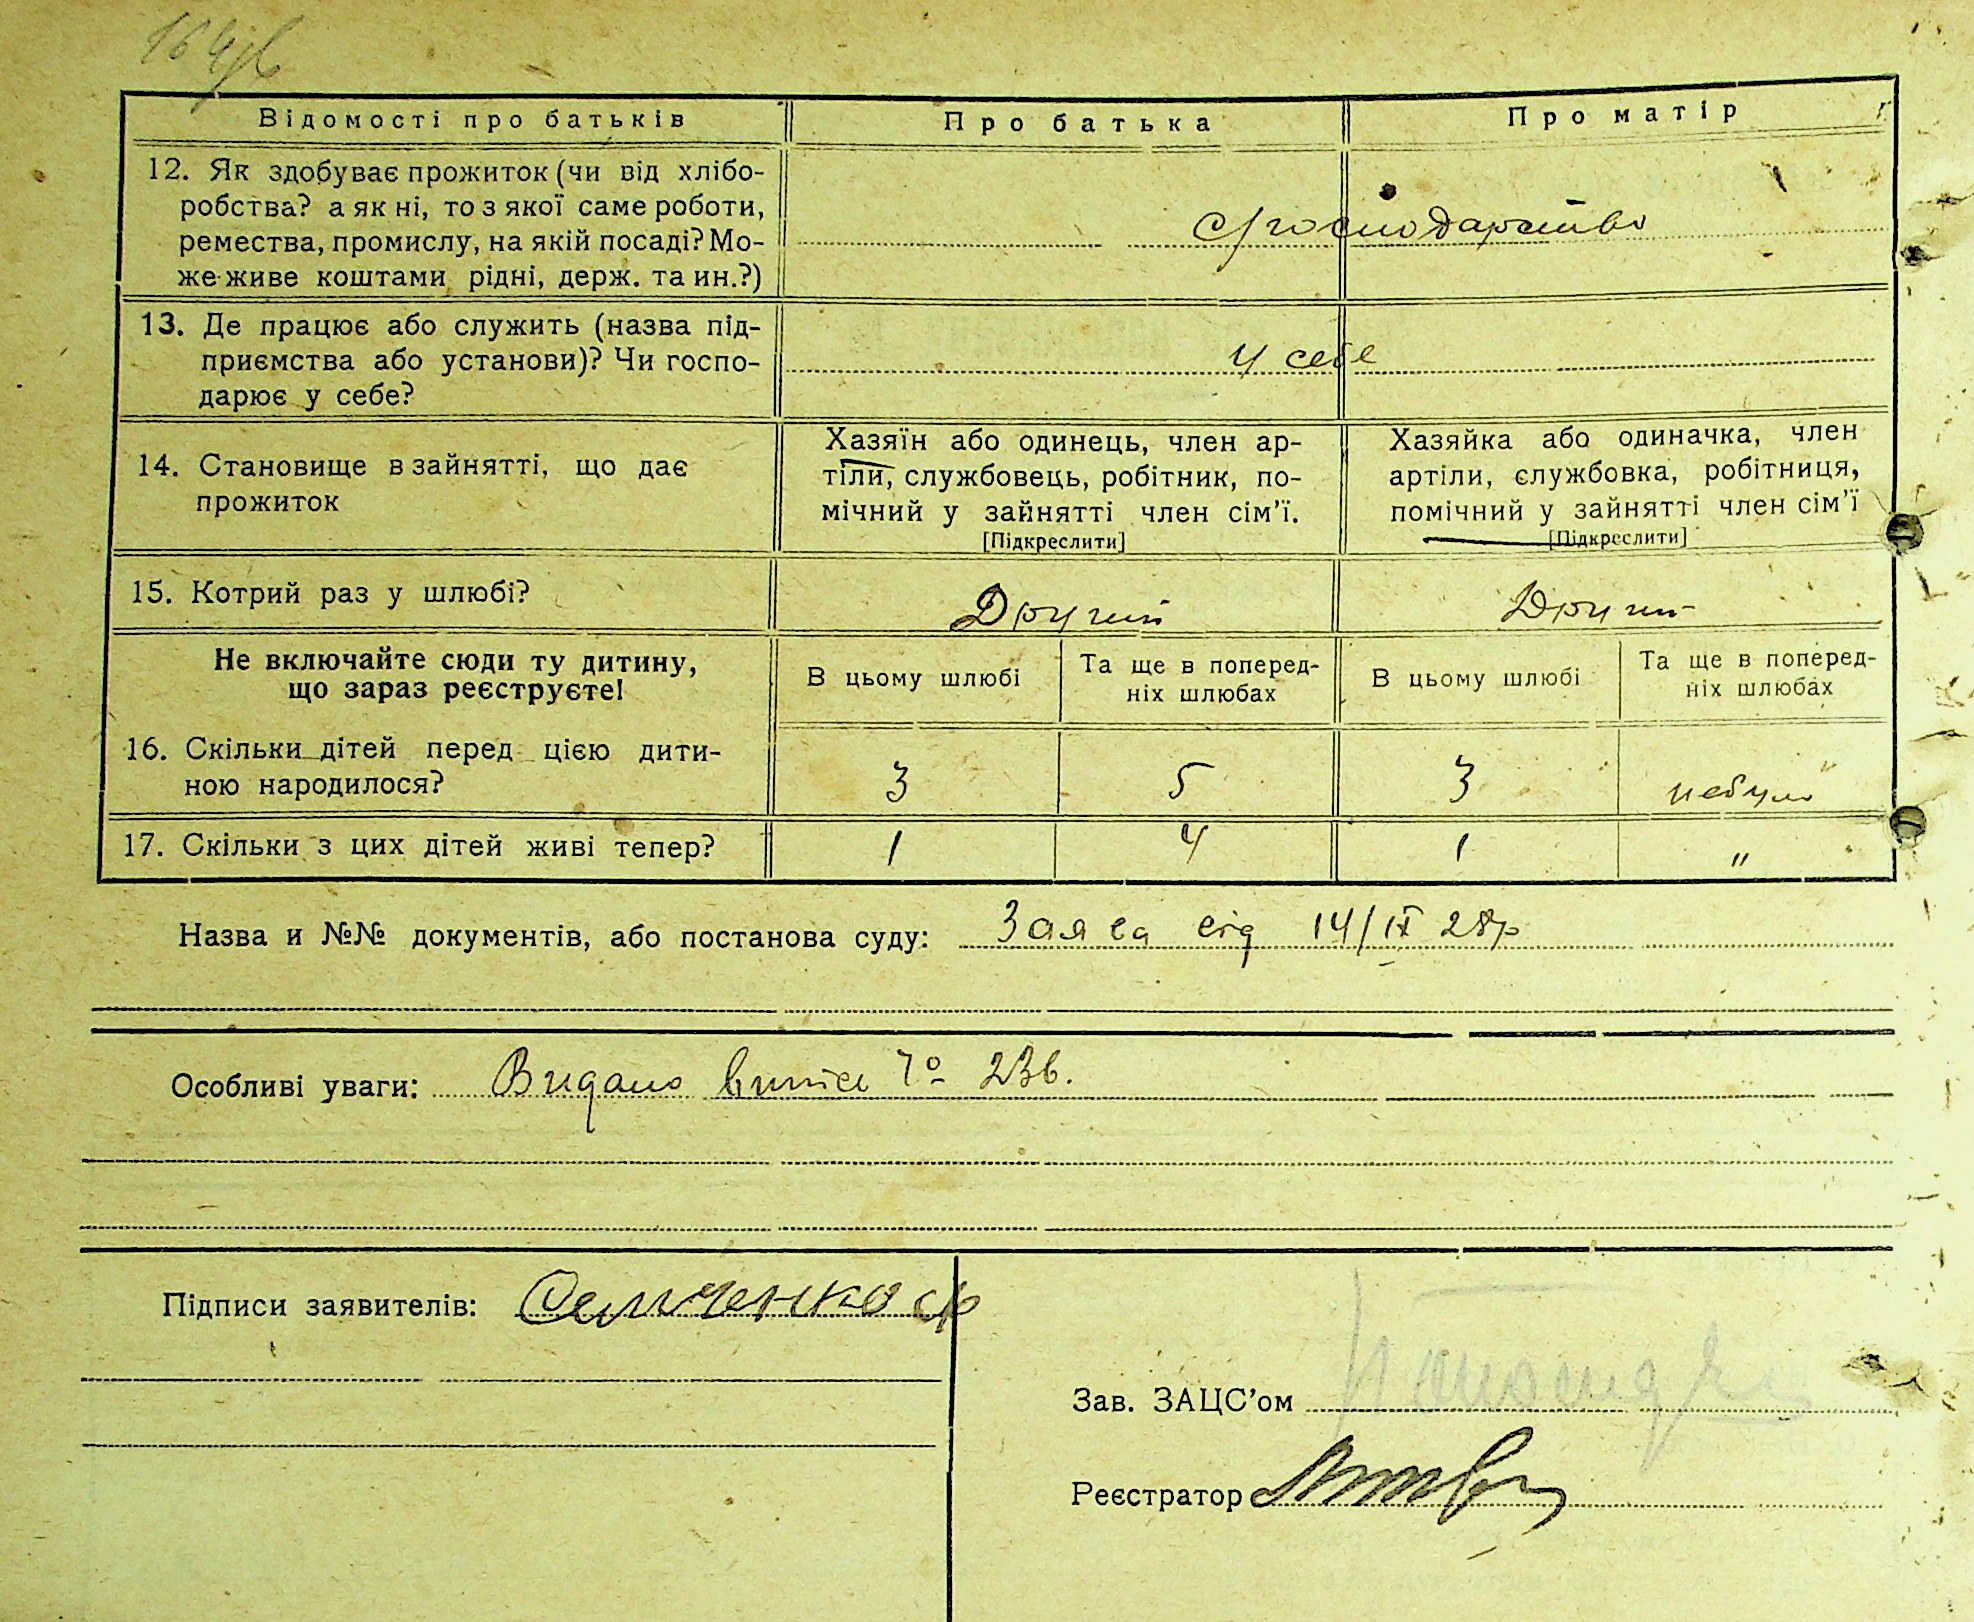 Відомості про батьків Про батька Про матір
12. Як здобуває прожиток (чи від хлібо-
робства? а як ні, то з якої саме роботи,
ремества, промислу, на якій посаді? Мо-
же живе коштами рідні, держ. та ин.?)
с/господарство
13. Де працює або служить (назва під-
приємства або установи)? Чи госпо-
дарює у себе?
у себе
14. Становище в зайнятті, що дає
прожиток
Хазяїн або одинець, член ар-
тіли, службовець, робітник, по-
мічний у зайнятті член сім'ї.
[Підкреслити]
Хазяйка або одиначка, член
артіли, службовка, робітниця,
помічний у зайнятті член сім'ї
[Підкреслити]
15. Котрий раз у шлюбі? Другий Другий
Не включайте сюди ту дитину,
що зараз реєструєте!
В цьому шлюбі
Та ще в поперед-
ніх шлюбах
В цьому шлюбі
Та ще в поперед-
ніх шлюбах
16. Скільки дітей перед цією дити-
ною народилося?
3 5 3 небуло
17. Скільки з цих дітей живі тепер? 1 4 1 "
Назва и №№ документів, або постанова суду: Заява від 14/IX 28р
Особливі уваги: Видано випис 236.
Підписи заявителів: Семченко
Зав. ЗАЦС'ом
Реєстратор